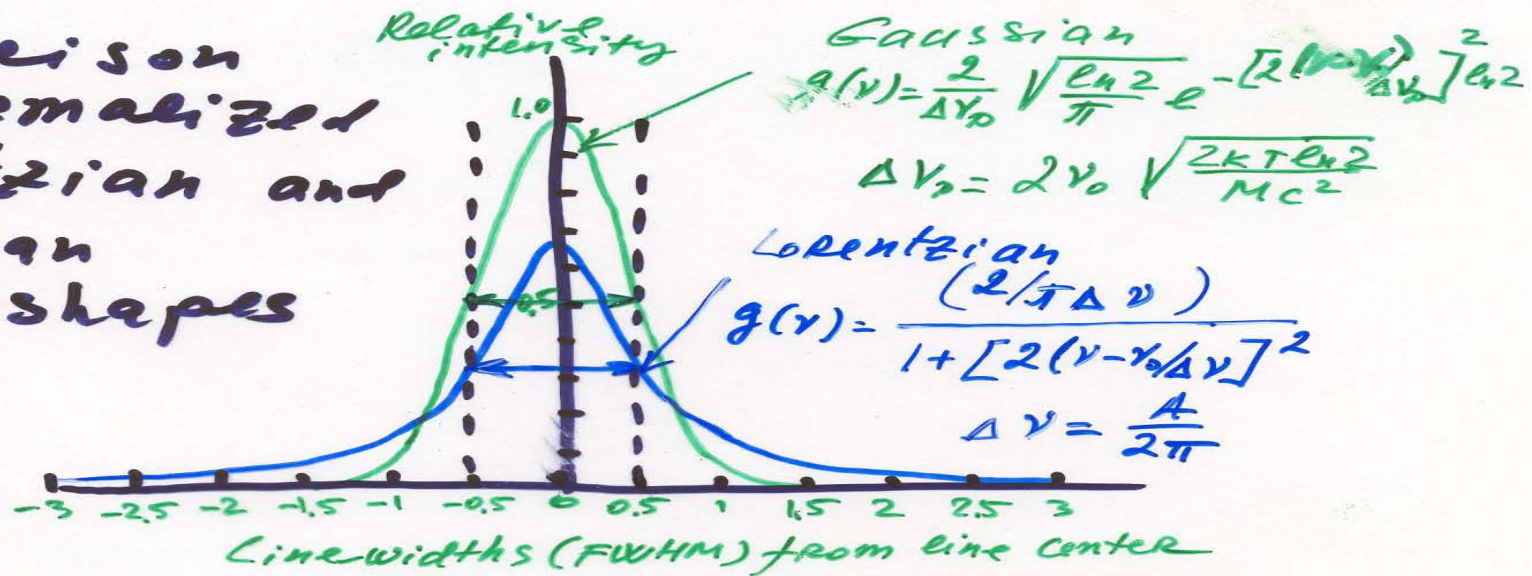 eison
emalized
zian and
an
shapes
Relative
intensity
1.0
0.5
Gaussian
g(ν)= 2/Δν_D √(ln 2/π) e^-[2(ν-ν₀)/Δν_D]² ln 2
Δν_D = 2ν₀ √(2kT ln 2/Mc²)
Lorentzian
g(ν)= (2/πΔν)/(1+[2(ν-ν₀/Δν]²)
Δν = A/2π
-3 -2.5 -2 -1.5 -1 -0.5 0 0.5 1 1.5 2 2.5 3
Linewidths (FWHM) from line center